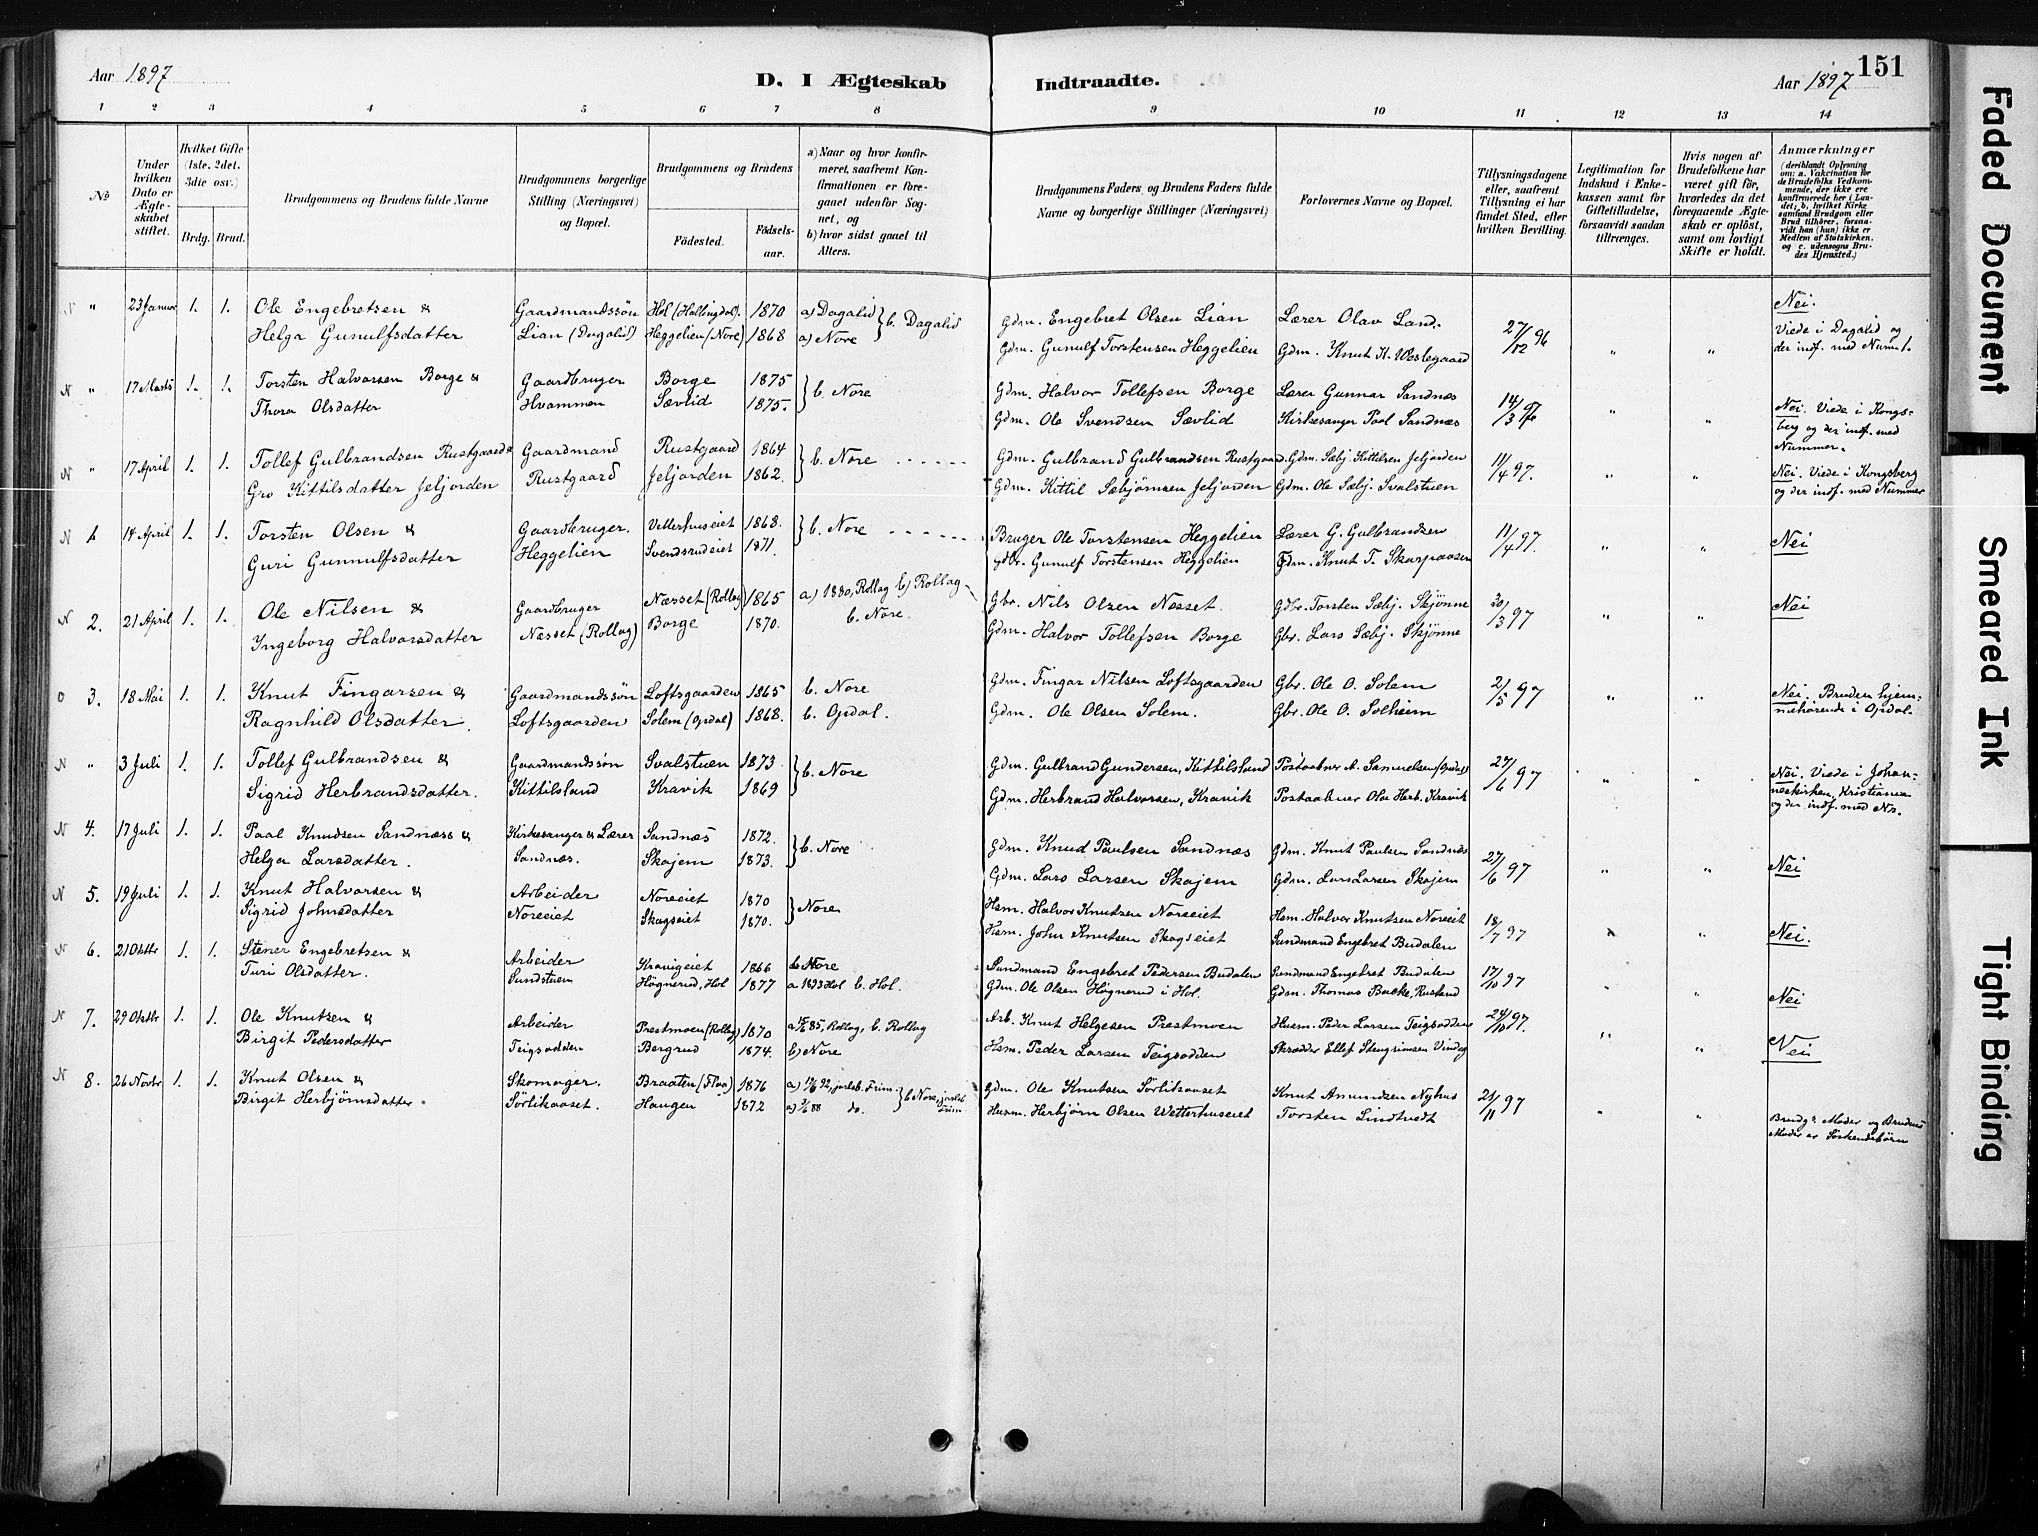 Aar 1897
D. I Ægteskab
Indtraadte.
Aar 1897
151
1 2 3 4 5 6 7 8 9 10 11 12 13 14
No
Under hvilken Dato er Ægteskabet stiftet.
Hvilket Gifte (1ste, 2det, 3die osv.)
Brdg. Brud.
Brudgommens og Brudens fulde Navne
Brudgommens borgerlige Stilling (Næringsvei) og Bopæl.
Brudgommens og Brudens
Födested.
Födsels-aar.
a) Naar og hvor konfirmeret, saafremt Konfirmationen er foregaaet udenfor Sognet, og
b) hvor sidst gaaet til Alters.
Brudgommens Faders, og Brudens Faders fulde Navne og borgerlige Stillinger (Næringsvei)
Forlovernes Navne og Bopæl.
Tillysningsdagene eller, saafremt Tillysning ei har fundet Sted, efter hvilken Bevilling.
Legitimation for Indskud i Enkekassen samt for Giftetilladelse, forsaavidt saadan tiltrænges.
Hvis nogen af Brudefolkene har været gift för, hvorledes da det foregaaende Ægteskab er oplöst, samt om lovligt Skifte er holdt.
Anmærkninger (deriblandt Oplysning om: a. Vakcination for de Brudefolks Vedkommende, der ikke ere konfirmerede her i Landet; b. hvilket Kirkesamfund Brudgom eller Brud tilhörer, forsaavidt han (hun) ikke er Medlem af Statskirken, og c. udensogns Brudes Hjemsted.)
N " 23 Januar 1. 1. Ole Engebretsen & Gaardmandssön Hol (Hallingdal). 1870 a) Dagalid } b. Dagalid Gdm. Engebret Olsen Lian Lærer Olav Land. 27/12 96 " " Nei.
Helga Gunulfsdatter Lian (Dagalid) Heggelien (Nore) 1868 a) Nore Gdm. Gunulf Torstensen Heggelien Gdm. Knut K. Veslegaard Viede i Dagalid og der indf. med Num.
N " 17 Marts 1. 1. Torsten Halvorsen Borge & Gaardbruger Borge 1875 } b. Nore Gdm. Halvor Tollefsen Borge Lærer Gunnar Sandnæs 14/3 97 " "
Thora Olsdatter Hvammen Sævlid 1875. Gdm. Ole Svendsen Sævlid Kirkesanger Paal Sandnæs Nei. Viede i Kongsberg og der indf. med Nummer.
N " 17 April 1. 1. Tollef Gulbrandsen Rustgaard & Gaardmand Rustgaard 1864 } b. Nore Gdm. Gulbrand Gulbrandsen Rustgaard Gdm. Sæbj. Kittilsen Jeljorden 11/4 97. " " Nei. Viede i Kongsberg
Gro Kittilsdatter Jeljorden Rustgaard Jeljorden 1862. Gdm. Kittil Sæbjörnsen Jeljorden Gdm. Ole Sæbj. Svalstuen og der indf. med Nummer
N 1. 14 April 1. 1. Torsten Olsen & Gaardbruger. Vetterhuseiet 1868. } b. Nore Bruger Ole Torstensen Heggelien Lærer G. Gulbrandsen 11/4 97. " " Nei
Guri Gunnulfsdatter Heggelien Svendsrudeiet 1871. Gdbr. Gunulf Torstensen Heggelien Gdm. Knut T. Skarpaasen
N 2. 21 April 1. 1. Ole Nilsen & Gaardbruger Næsset (Rollag) 1865 a) 1880, Rollag b) Rollag Gbr. Nils Olsen Næsset. Gdbr. Torsten Sæbj. Skjönne 30/3 97 " " Nei
Ingeborg Halvorsdatter Næsset (Rollag) Borge 1870. b. Nore. Gdm. Halvor Tollefsen Borge Gbr. Lars Sæbj. Skjönne
O 3. 18 Mai 1. 1. Knut Fingarsen & Gaardmandssön Loftsgaarden 1865 b. Nore Gdm. Fingar Nilsen Loftsgaarden Gbr. Ole O. Solem 2/5 97 " " Nei. Bruden hjem-
Ragnhild Olsdatter. Loftsgaarden Solem (Opdal) 1868. b. Opdal. Gdm. Ole Olsen Solem. Gbr. Ole O. Solheim mehörende i Opdal.
N " 3 Juli 1. 1. Tollef Gulbrandsen & Gaardmandssön Svalstuen 1873 } b. Nore Gdm. Gulbrand Gundersen, Kittilsland Postaabner A. Samuelsen (Opdal) 27/6 97 " " Nei. Viede i Johan-
Sigrid Herbrandsdatter. Kittilsland Kravik 1869 Gdm. Herbrand Halvorsen, Kravik Postaabner Ola Herb. Kravik neskirken, Kristiania og der indf. med No.
N 4. 17 Juli 1. 1. Paal Knudsen Sandnæs & Kirkesanger & Lærer Sandnæs 1872. } b. Nore Gdm. Knud Paulsen Sandnæs Gdm. Knut Paulsen Sandnæs 27/6 97 " " Nei
Helga Larsdatter. Sandnæs. Skajem 1873. Gdm. Lars Larsen Skajem Gdm. Lars Larsen Skajem
N 5. 19 Juli 1. 1. Knut Halvorsen & Arbeider Noreeiet 1870 } Nore Hsm. Halvor Knutsen Noreeiet Hsm. Halvor Knutsen Noreeiet 18/7 97 " " Nei.
Sigrid Johnsdatter Noreeiet Skagseiet 1870. Hsm. John Knutsen Skagseiet Sundmand Engebret Budalen
N 6. 21 Oktbr 1. 1. Stener Engebretsen & Arbeider Kravigeiet 1866 b. Nore Sundmand Engebret Pedersen Budalen Sundmand Engebret Budalen 17/10 97 " " Nei
Turi Olsdatter. Sundstuen Högnerud, Hol 1877 a 1893 Hol b. Hol. Gdm. Ole Olsen Högnerud i Hol. Gdm. Thomas Bakke, Rustand
N 7. 29 Oktbr 1. 1. Ole Knutsen & Arbeider Prestmoen (Rollag) 1870 85, Rollag, b. Rollag Arb. Knut Helgesen Prestmoen Husm. Peder Larsen Teigsodden 24/10 97. " " Nei
Birgit Pedersdatter Teigsodden Bergrud 1874. b) Nore Hsm. Peder Larsen Teigsodden Skrædder Ellef Stengrimsen
N 8. 26 Novbr 1. 1. Knut Olsen & Skomager. Braaten (Flaa) 1876 a) 92, jarlsb. Frim. } b. Nore, jarlsb. Frim. Gdm. Ole Knutsen Sörlikaaset Knut Amundsen Nyhus 21/11 97 " "
Birgit Herbjörnsdatter. Sörlikaaset. Haugen 1872 a) 88 do. Husm. Herbjörn Olsen Wetterhuseiet Torsten Lindtvedt Brudg. Moder og Brudens Moder er Söskendebörn
Faded Document
Smeared Ink
Tight Binding